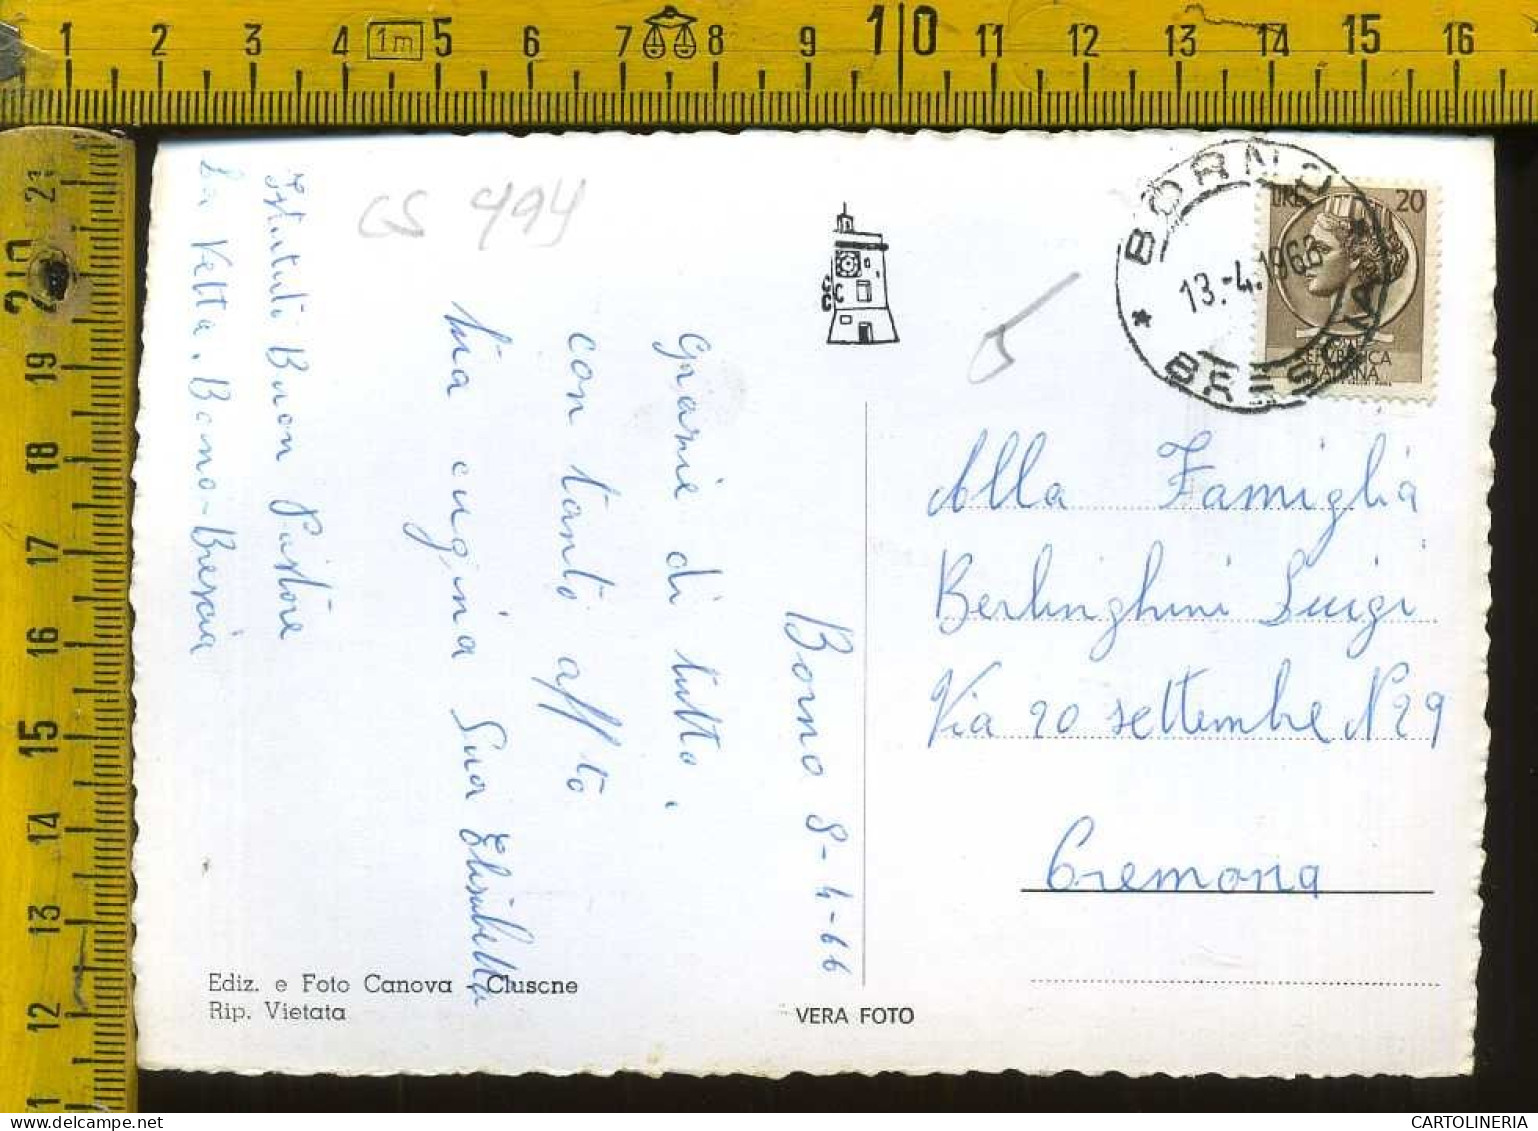 1 2 3 4 1m 5 6 7 8 9 10 11 12 13 14 15 16
21
20
19
18
17
16
15
14
13
12
1
CS 494
BORNO
13.-4.1966
BRESCIA
LIRE 20
REPVBBLICA
ITALIANA
Borno 8-4-66
Grazie di tutto,
con tanto aff/to
tua cugina Suor Elisabetta
Istituto Buon Pastore
La Vetta. Borno-Brescia
Alla Famiglia
Berlinghini Luigi
Via 20 settembre N 29
Cremona
Ediz. e Foto Canova - Clusone
Rip. Vietata
VERA FOTO
CARTOLINERIA